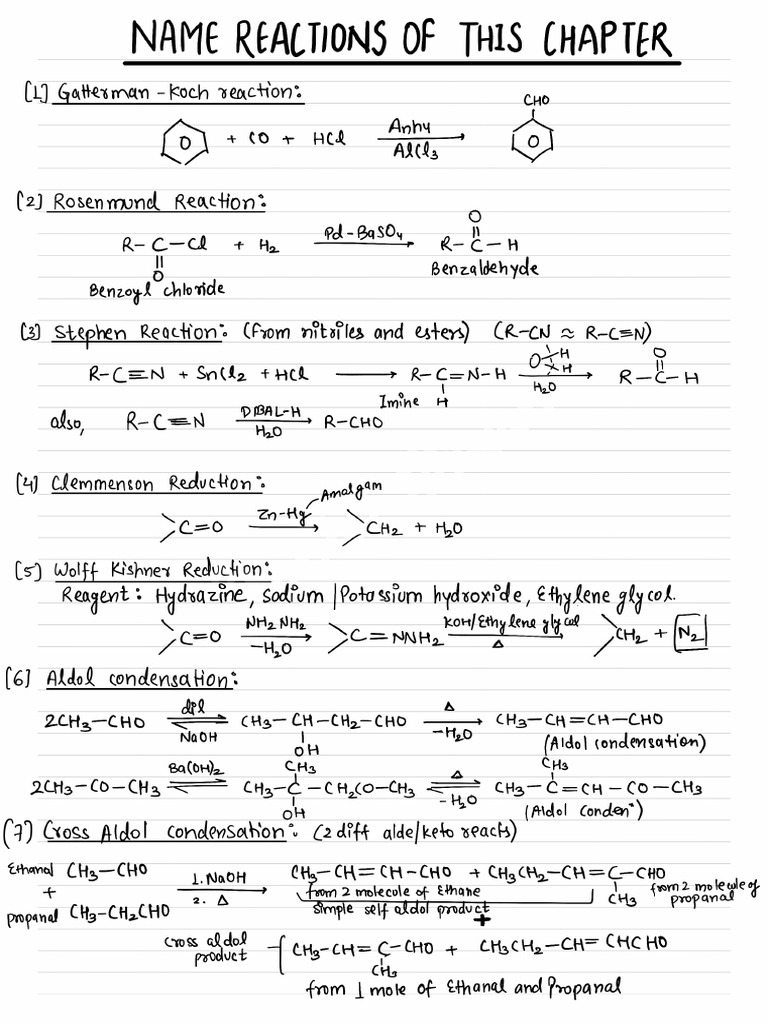 NAME REACTIONS OF THIS CHAPTER
[1] Gatterman-Koch reaction:
CHO
+ CO + HCl Anhy AlCl3
[2] Rosenmund Reaction:
R-C-Cl + H2 Pd-BaSO4 R-C-H
O O
Benzoyl chloride Benzaldehyde
[3] Stephen Reaction: (from nitriles and esters) (R-CN ≈ R-C≡N)
R-C≡N + SnCl2 + HCl → R-C=N-H O H H H2O → R-C-H
O
Imine H
also, R-C≡N DIBAL-H H2O → R-CHO
[4] Clemmenson Reduction:
C=O Zn-Hg Amalgam → CH2 + H2O
[5] Wolff Kishner Reduction:
Reagent: Hydrazine, Sodium/Potassium hydroxide, Ethylene glycol.
C=O NH2NH2 -H2O → C=NNH2 KOH/Ethylene glycol Δ → CH2 + N2
[6] Aldol condensation:
2CH3-CHO dil NaOH ⇌ CH3-CH-CH2-CHO Δ -H2O → CH3-CH=CH-CHO
OH (Aldol condensation)
CH3 CH3
2CH3-CO-CH3 Ba(OH)2 ⇌ CH3-C-CH2CO-CH3 Δ -H2O ⇌ CH3-C=CH-CO-CH3
OH (Aldol conden")
(7) Cross Aldol condensation: (2 diff alde/keto reacts)
Ethanal CH3-CHO 1. NaOH CH3-CH=CH-CHO + CH3CH2-CH=C-CHO
+ 2. Δ from 2 molecule of Ethane CH3 from 2 molecule of propanal
propanal CH3-CH2CHO simple self aldol product
+
cross aldol product CH3-CH=C-CHO + CH3CH2-CH=CHCHO
CH3
from 1 mole of Ethanal and Propanal